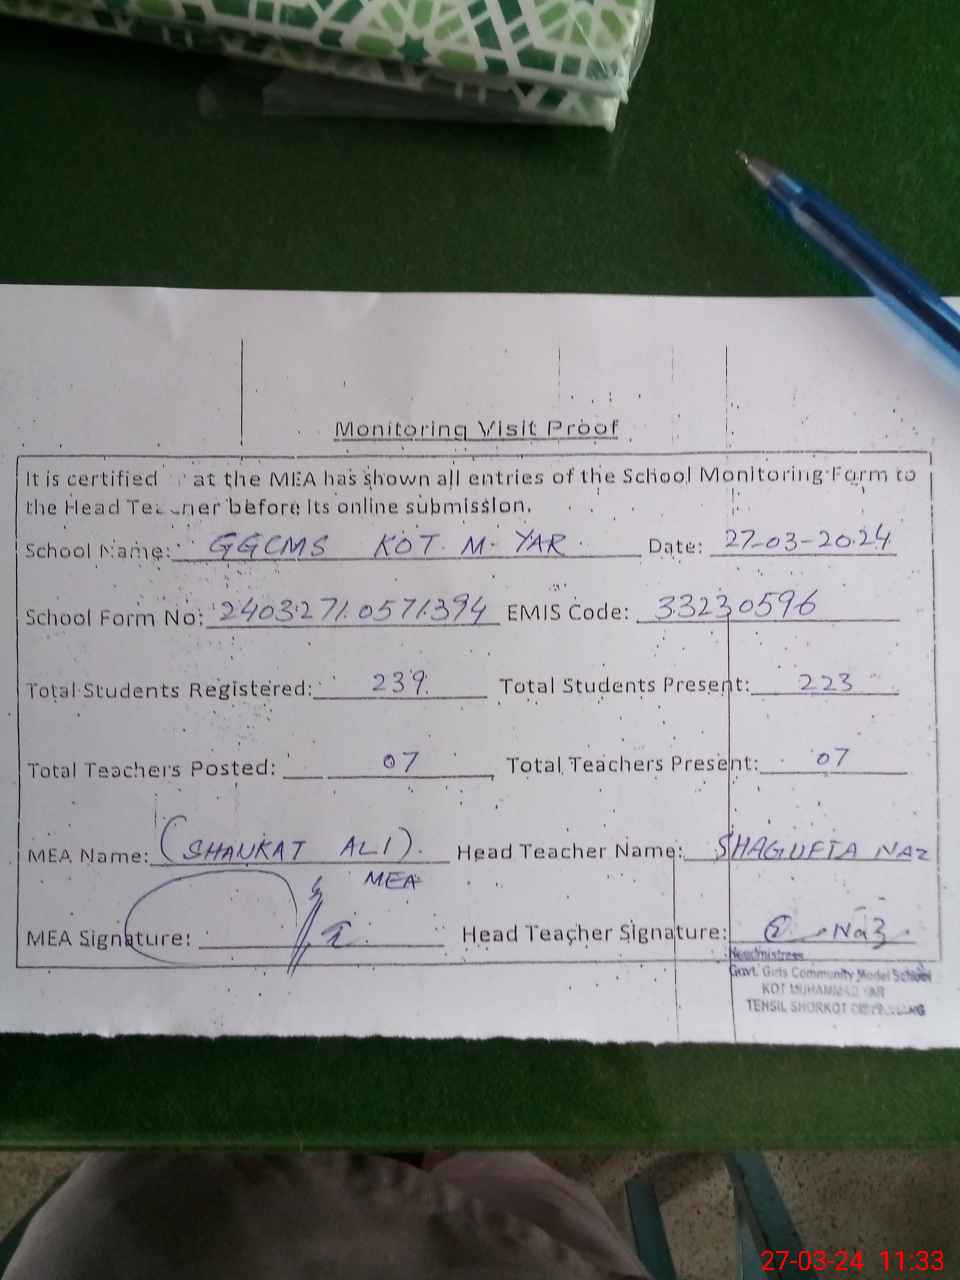 Monitoring Visit Proof
It is certified at the MEA has shown all entries of the School Monitoring Form to
the Head Teacher before its online submission.
School Name: GGCMS KOT. M. YAR. Date: 27-03-2024
School Form No: 2403271.0571394 EMIS Code: 33230596
Total Students Registered: 239. Total Students Present: 223
Total Teachers Posted: 07 Total Teachers Present: 07
MEA Name: (SHAUKAT ALI). Head Teacher Name: SHAGUFTA NAZ
MEA
MEA Signature: Head Teacher Signature: Naz
Headmistress
Govt. Girls Community Model School
KOT MUHAMMAD YAR
TEHSIL SHORKOT
27-03-24 11:33